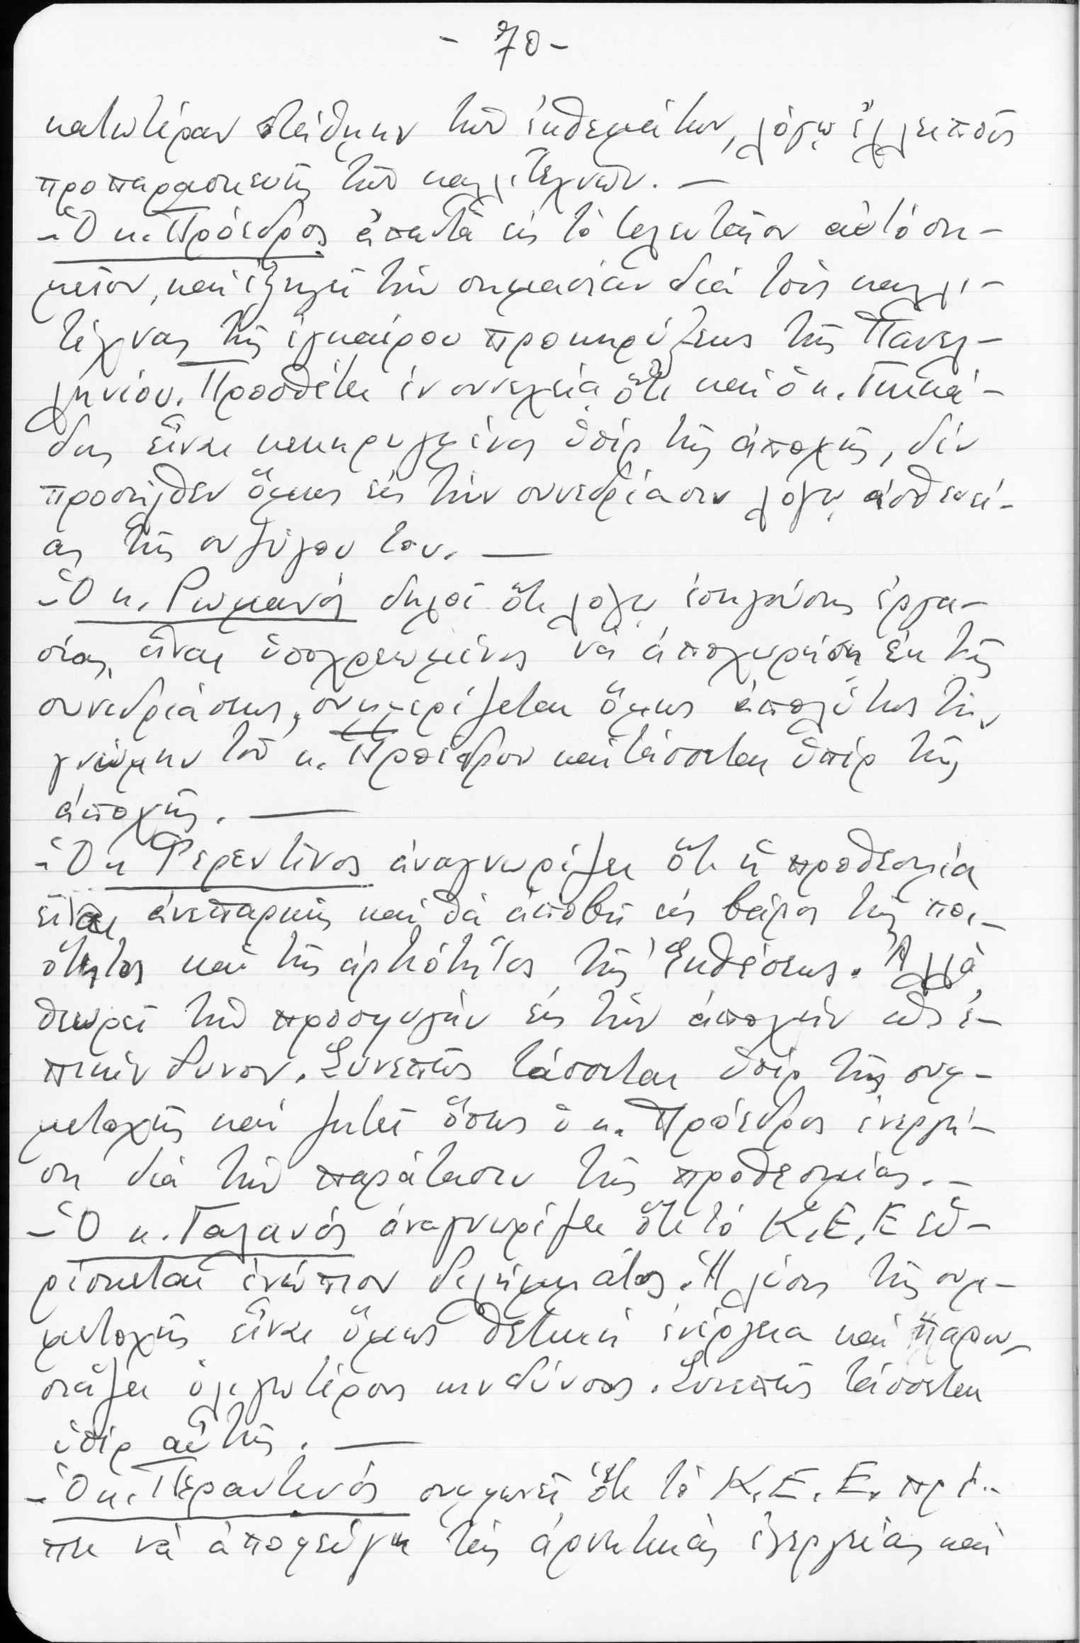 - 70 -
κατωτέραν στάθμην τῶν ἐκθεμάτων, λόγῳ ἐλλειποῦς
προπαρασκευῆς τῶν καλλιτεχνῶν. —
- Ὁ κ. Πρόεδρος ἀπαντᾶ εἰς τὸ τελευταῖον αὐτὸ ση-
μεῖον, καὶ ἐξηγεῖ τὴν σημασίαν διὰ τοὺς καλλι-
τέχνας τῆς ἐγκαίρου προκηρύξεως τῆς Πανελ-
ληνίου. Προσθέτει ἐν συνεχείᾳ ὅτι καὶ ὁ κ. Γκικά-
δης εἶναι κεκηρυγμένος ὑπὲρ τῆς ἀποχῆς, δὲν
προσῆλθεν ὅμως εἰς τὴν συνεδρίασιν λόγῳ ἀσθενεί-
ας τῆς συζύγου του. —
- Ὁ κ. Ρωμανός δηλοῖ ὅτι λόγῳ ἐπειγούσης ἐργα-
σίας εἶναι ὑποχρεωμένος νὰ ἀποχωρήσῃ ἐκ τῆς
συνεδριάσεως, συμμερίζεται ὅμως ἀπολύτως τὴν
γνώμην τοῦ κ. Προέδρου καὶ τάσσεται ὑπὲρ τῆς
ἀποχῆς. —
- Ὁ κ Φερεντῖνος ἀναγνωρίζει ὅτι ἡ προθεσμία
εἶναι ἀνεπαρκὴς καὶ θὰ ἀποβῇ εἰς βάρος τῆς ποι-
ότητος καὶ τῆς ἀρτιότητος τῆς Ἐκθέσεως. Ἀλλὰ
θεωρεῖ τὴν προσφυγὴν εἰς τὴν ἀποχὴν ὡς ἐ-
πικίνδυνον. Συνεπῶς τάσσεται ὑπὲρ τῆς συμ-
μετοχῆς καὶ ζητεῖ ὅπως ὁ κ. Πρόεδρος ἐνεργή-
ση διὰ τὴν παράτασιν τῆς προθεσμίας. —
- Ὁ κ. Γαλανός ἀναγνωρίζει ὅτι τό Κ.Ε.Ε εὑ-
ρίσκεται ἐνώπιον διλήμματος. Ἡ λύσις τῆς συμ-
μετοχῆς εἶναι ὅμως θετικὴ ἐνέργεια καὶ παρου-
σιάζει ὀλιγωτέρους κινδύνους. Συνεπῶς τάσσεται
ὑπὲρ αὐτῆς. —
- Ὁ κ. Περαντινός συμφωνεῖ ὅτι τὸ Κ.Ε.Ε. πρέ-
πει νὰ ἀποφεύγῃ τὰς ἀρνητικὰς ἐνεργείας καὶ